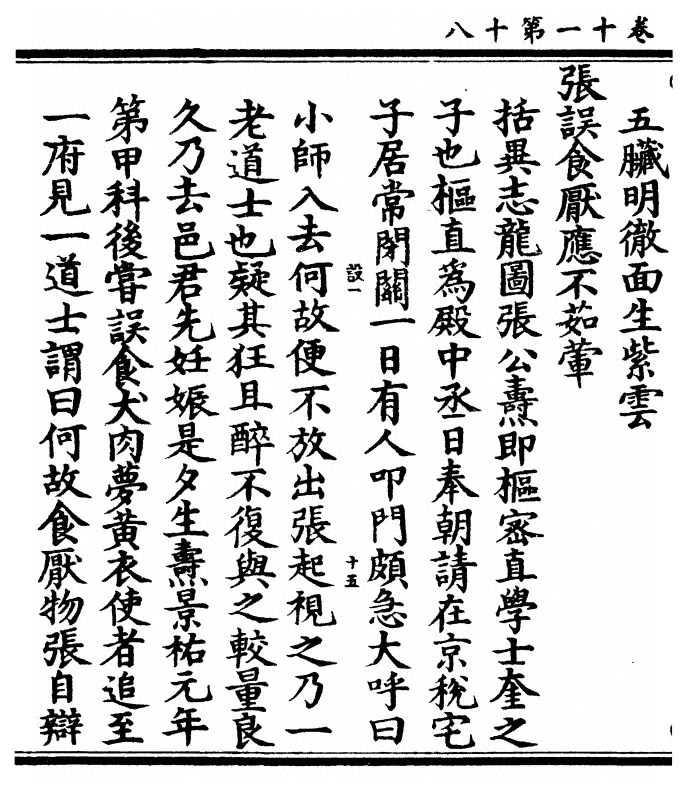 卷十一第十八
五臟明徹面生紫雲
張誤食厭應不茹葷
括異志龍圖張公燾即樞密直學士奎之
子也樞直為殿中丞日奉朝請在京稅宅
子居常閉關一日有人叩門頗急大呼曰
設一
十五
小師入去何故便不放出張起視之乃一
老道士也疑其狂且醉不復與之較量良
久乃去邑君先妊娠是夕生燾景祐元年
第甲科後嘗誤食犬肉夢黃衣使者追至
一府見一道士謂曰何故食厭物張自辯